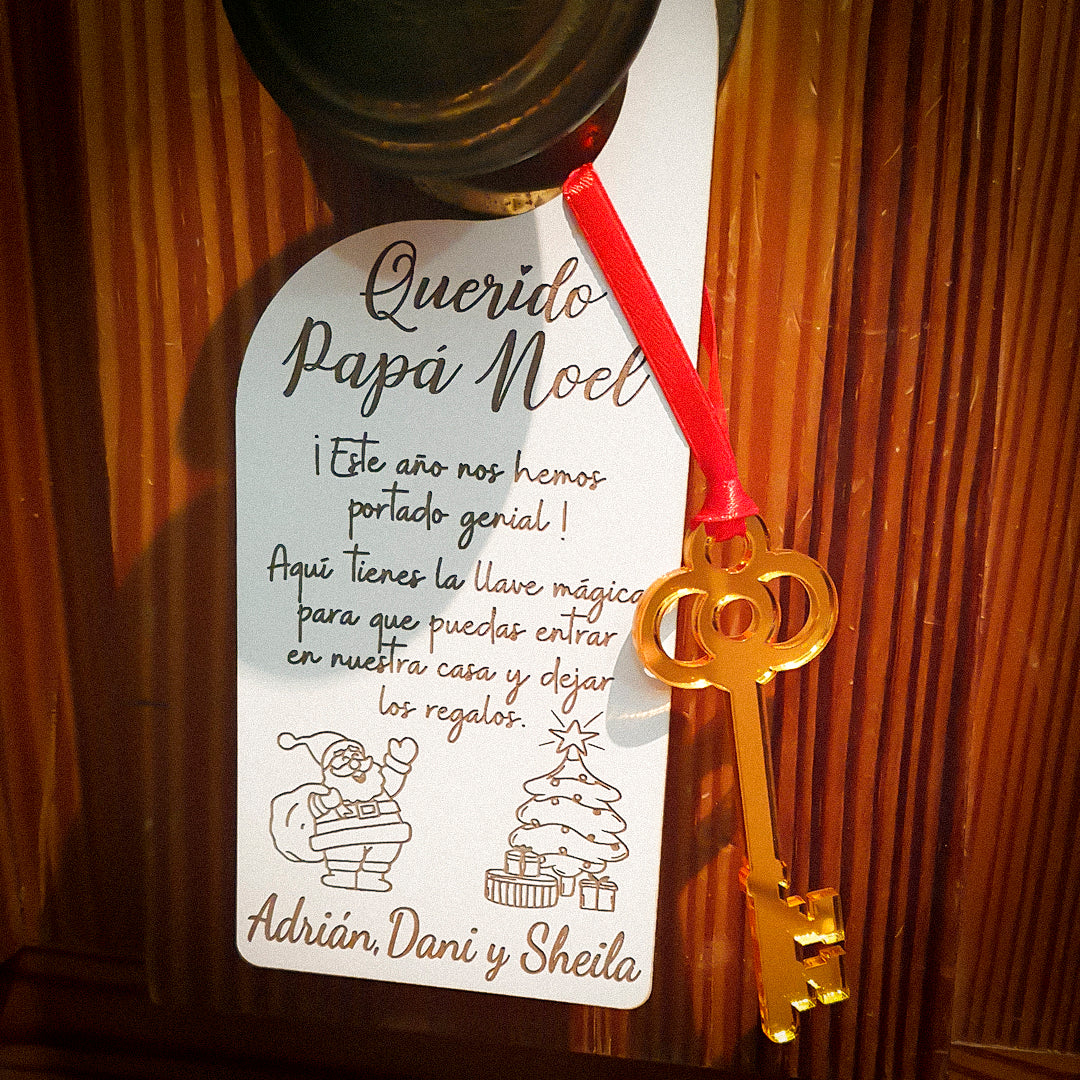 Querido
Papá Noel
¡Este año nos hemos
portado genial!
Aquí tienes la llave mágica
para que puedas entrar
en nuestra casa y dejar
los regalos.
Adrián, Dani y Sheila